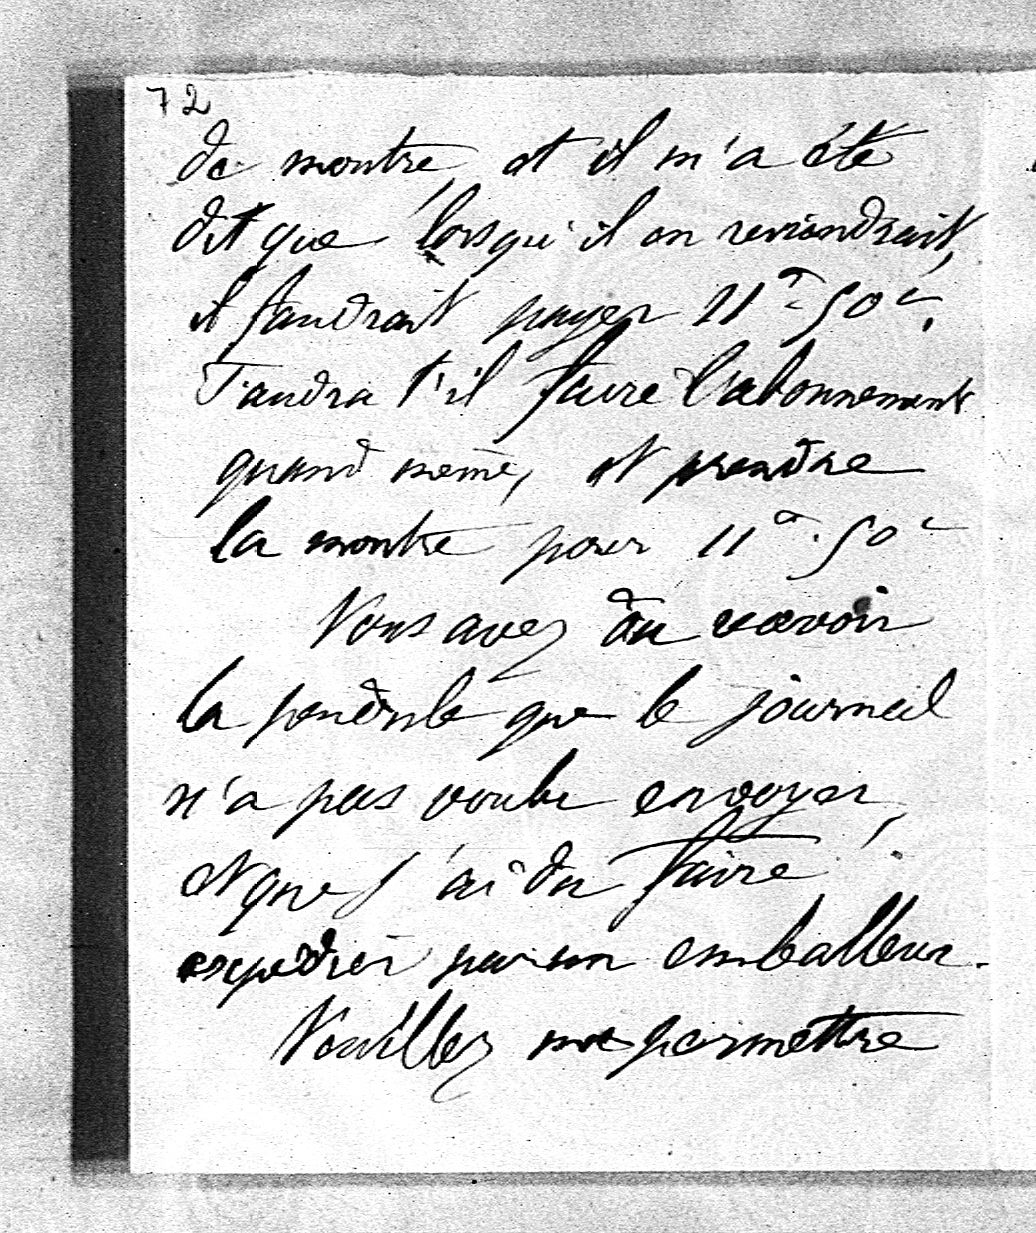 72
de montre et il m'a été
dit que lorsqu'il en reviendrait,
il faudrait payer 11f. 50c.
Faudra t'il faire l'abonnement
quand même, et prendre
la montre pour 11f. 50c
Vous avez dû recevoir
la pendule que le journal
n'a pas voulu envoyer,
et que j'ai du faire
expédier par un emballeur.
Veuillez me permettre